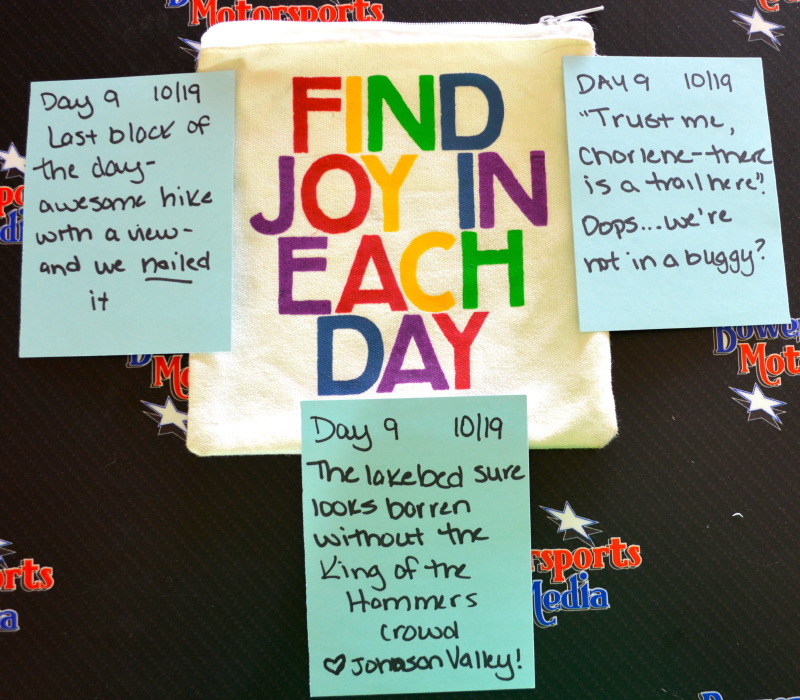 Motorsports
FIND
JOY IN
EACH
DAY
Day 9 10/19
Last block of
the day-
awesome hike
with a view-
and we nailed
it
DAY 9 10/19
"Trust me,
Charlene-there
is a trail here".
Oops...we're
not in a buggy?
Day 9 10/19
The lakebed sure
looks barren
without the
King of the
Hammers
crowd
♡ Johnson Valley!
Motorsports
Media